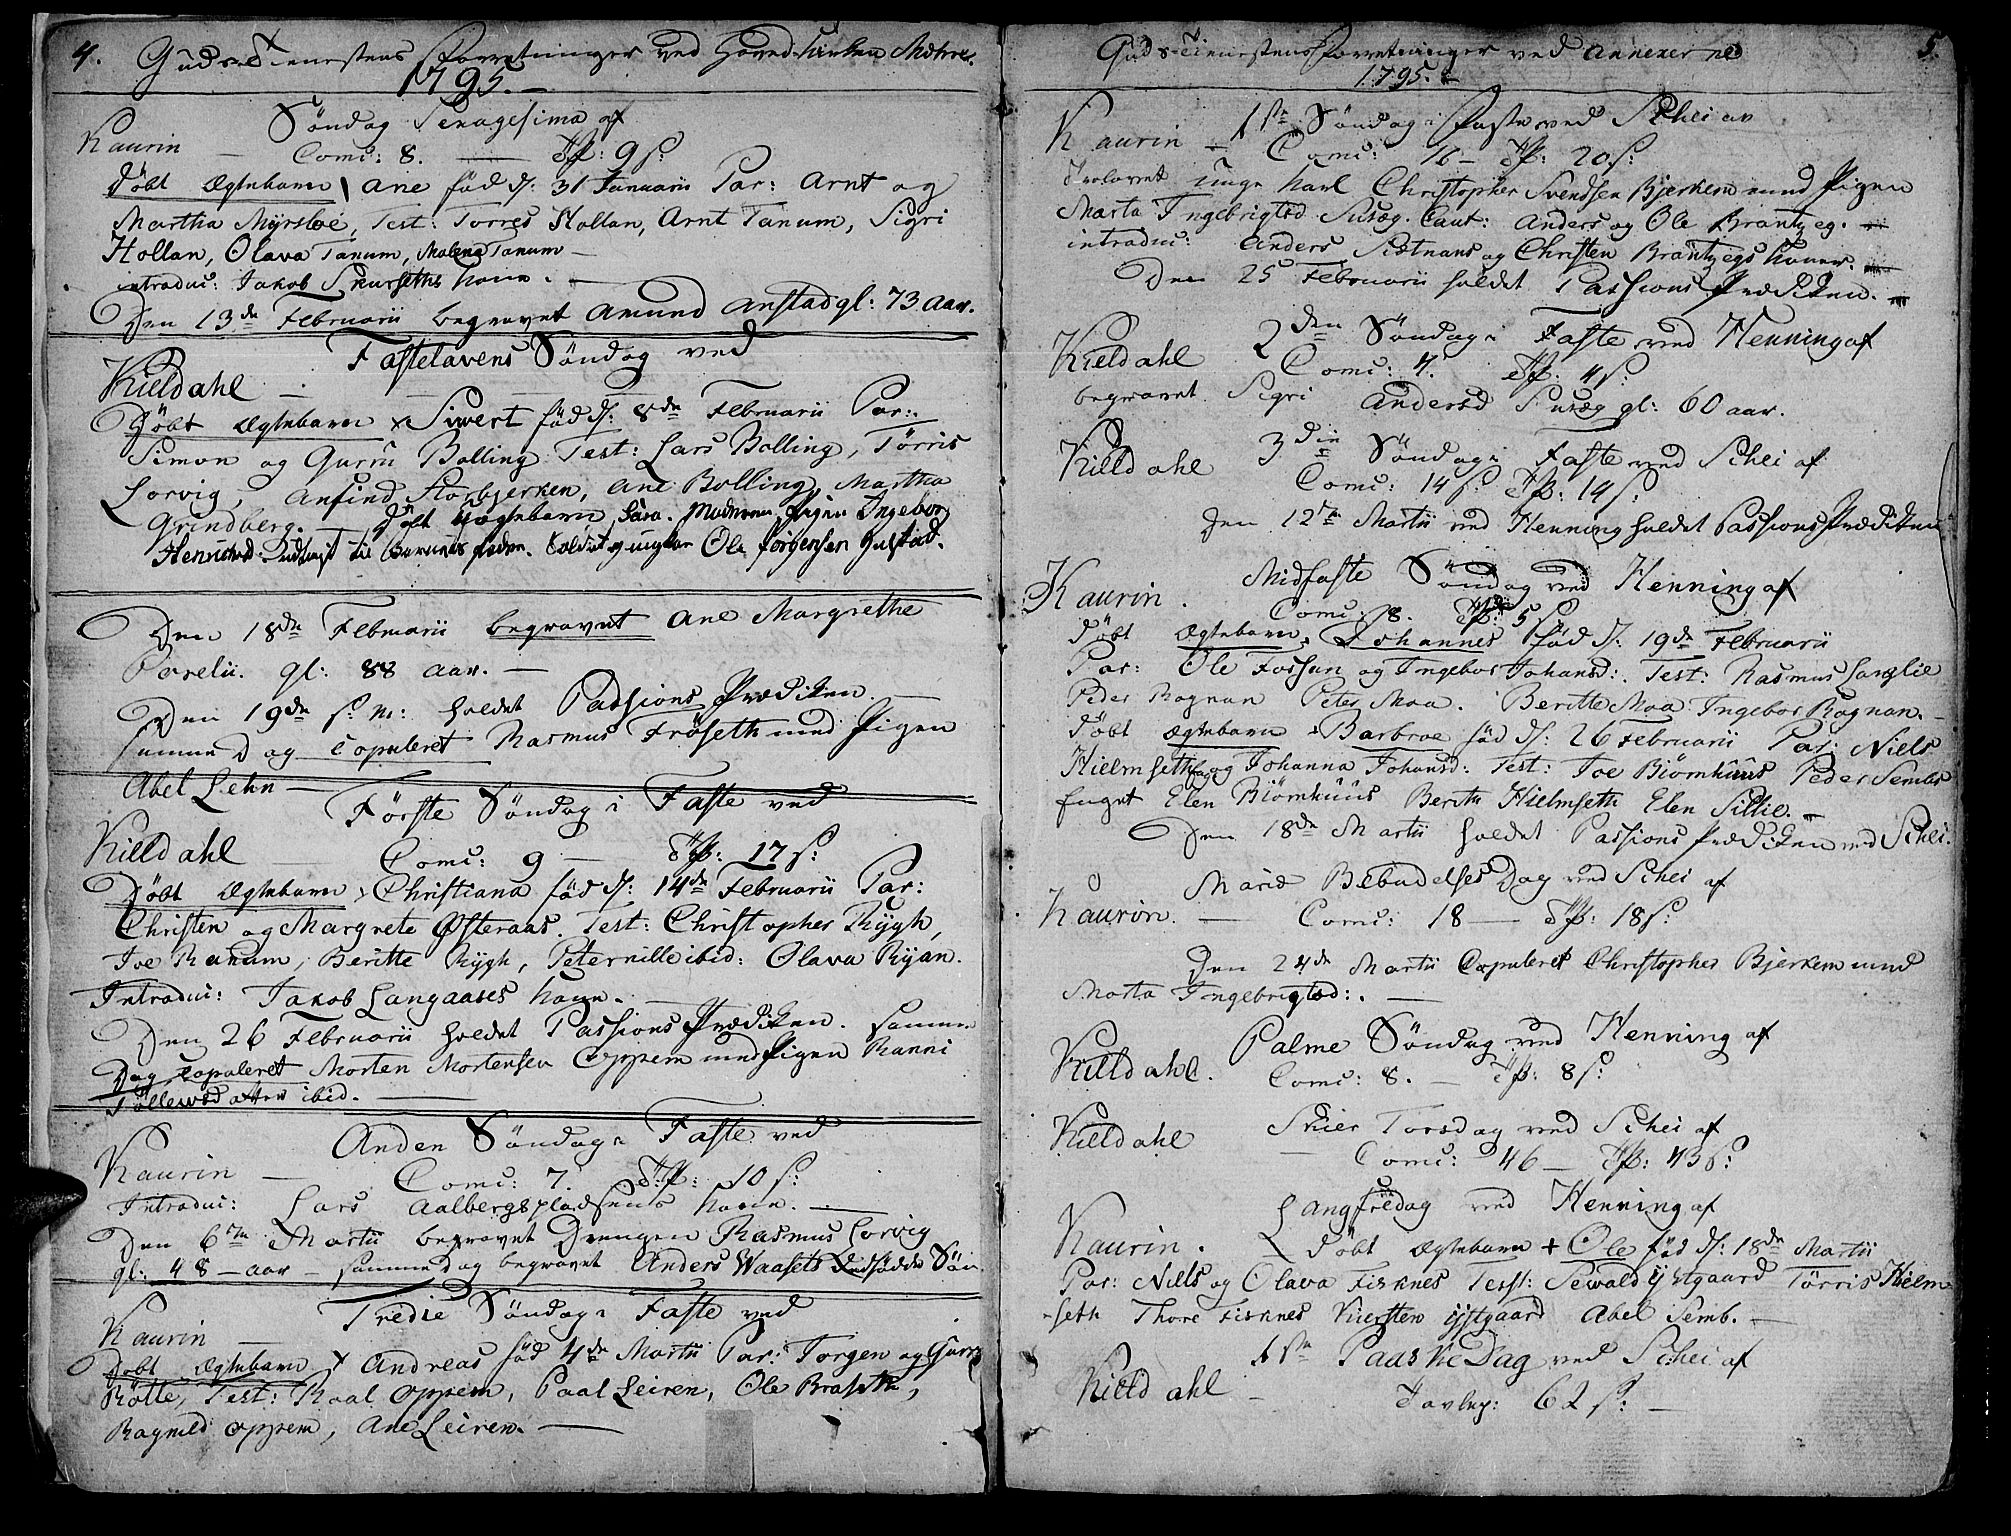 4. Gudstienestens Forretninger ved Hoved-Kirken
1795.
Søndag Sexagesima af
Kaurin — Comu: 8. — Tp: 9 s:
Døbt Ægtebarn Ane fød d: 31 Januarii Par: Arnt og
Martha Myrsloe, Test: Torres Hollan, Arnt Tanum, Sigri
Hollan, Olava Tanum, Malena Tanum —
introduc: Jakob Skurseths kone. —
Den 13de Februarii begravet Amund Anstad gl: 73 Aar.
Fastelavens Søndag ved
Kieldahl — — —
Døbt Ægtebarn x Siwert fød d: 8de Februarii Par:
Simon og Gurru Bolling Test: Lars Bolling, Tørris
Lorvig, Anfind Storbjerken, Ane Bolling, Martha
Grindberg. — Døbt uægtebarn Sara. Moderen Pigen Ingebor
Henrichsd: Udlagt til Barnefader Soldat ungkar Ole Jørgensen Gulstad.
Den 18de Februarii begravet Ane Margrethe
gl: 88 aar. —
Den 19de s. M: holdet Passions Prædiken. —
samme Dag Copuleret Rasmus Frøseth med Pigen
Abel Lehn —
Første Søndag i Faste ved
Killdahl — Comu: 9 — Tp: 17 s:
Døbt Ægtebarn x Christiana fød d: 14de Februarii Par:
Christen og Margrete Østeraas. Test: Christopher Rygh,
Joe Ranum, Beritte Rygh, Peternille ibid: Olava Ryan.
Introduc: Jakob Langaases kone. —
Den 26 Februarii holdet Passions Prædiken. samme
Dag Copuleret Morten Mortensen Oppem med Pigen Ranni
Tollewsdatter ibid. —
Anden Søndag i Faste ved
Kaurin — Comu: 7. Tp: 10 s:
Introduc: Lars Aalbergspladsens kone. —
Den 6te Martii begravet Drengen Rasmus Lorvig
gl: 48 — aar — samme Dag begravet Anders Waasets Dødfødde Søn
Tredie Søndag i Faste ved
Kaurin —
Døbt Ægtebarn x Andreas fød 4de Martii Par: Torgen og Gurru
Rotte, Test: Roal Oppem, Paal Leiren, Ole Braseth,
Ragnild Oppem, Ane Leiren. —
Guds-Tienestens Forretninger ved Annexerne 5.
1795.
Kaurin — 1ste Søndag i Faste ved Schei av
Comu: 16 — Tp: 20 s:
Trolovet unge karl Christopher Svendsen Bjerkem med Pigen
Marta Ingebrigtsd Susæg. Caut: Anders og Ole Brantzeg. —
introduc: Anders Sætnans og Christen Brantzegs koner. —
Den 25 Februarii holdet Passions Prædiken. —
2den Søndag i Faste ved Henning af
Kieldahl Comu: 4. Tp: 4 s:
begravet Sigri Andersd Susæg gl: 60 aar.
3die Søndag i Faste ved Schei af
Killdahl Comu: 14 s: Tp: 14 s:
Den 12te Martii ved Henning holdet Passions Prædiken
Midfaste Søndag ved Henning af
Kaurin. Comu: 8. Tp: 5 s:
Døbt Ægtebarn Johannes fød d: 19de Februarii
Par: Ole Fossun og Ingebor Johansd: Test: Rasmus Langlie
Peder Rognan Peter Moa. Beritte Moa Ingebor Rognan. —
Døbt Ægtebarn x Barbroe fød d: 26 Februarii Par: Niels
Hielmseth og Johanna Johansd: Test: Joe Biørnhuus Peder Sembs
Elen Biørnhuus Berith Hielmseth Elen Sillie. —
Den 18de Martii holdet Passions Prædiken ved Schei.
Mariæ Bebudelses Dag ved Schei af
Kaurin. — Comu: 18 — Tp: 18 s:
Den 24de Martii Copuleret Christopher Bjerkem med
Marta Ingebrigtsd:. —
Palme Søndag ved Henning af
Killdahl. Comu: 8. — Tp: 8 s:
Skier Torsdag ved Schei af
Kieldahl — Comu: 46 — Tp: 43 s:
Langfredag ved Henning af
Kaurin. Døbt Ægtebarn + Ole fød d: 18de Martii
Par: Niels og Olava Fisknes Test: Sewald Ystgaard Tørris Hielm
-seth Thore Fisknes Kiersten Ystgaard Abel Semb. —
1ste Paaske Dag ved Schei af
Killdahl — Tavlep: 62 s: —